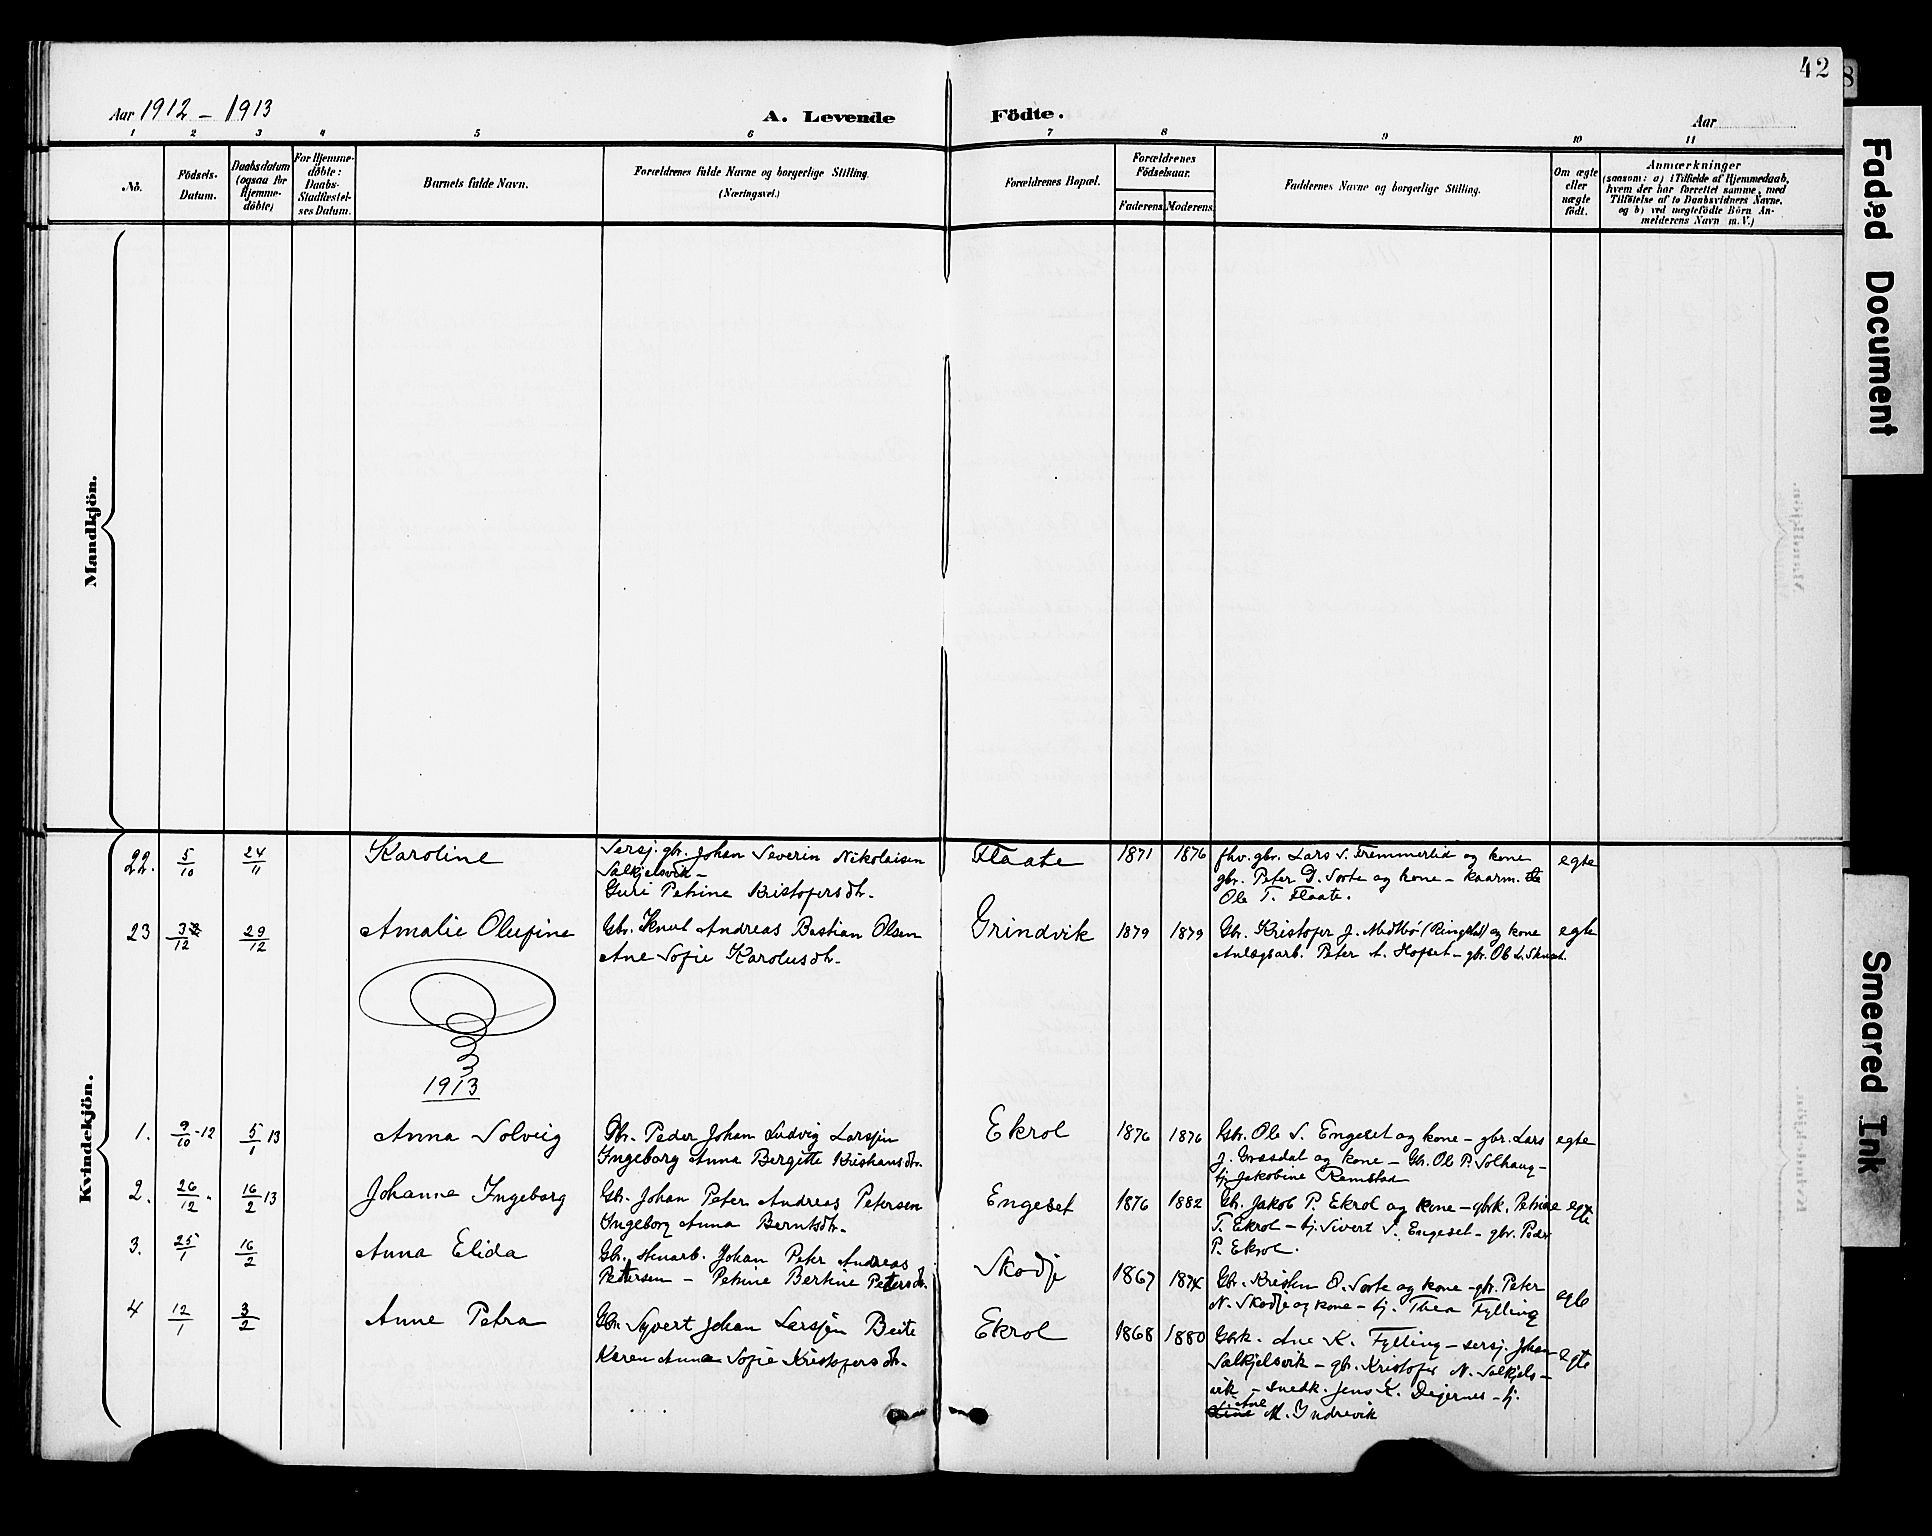 42
Aar 1912 – 1913
A. Levende Födte.
Aar
1 2 3 4 5 6 7 8 9 10 11
No.
Födsels-
Datum.
Daabsdatum
(ogsaa for
Hjemme-
döbte)
For Hjemme-
döbte:
Daabs-
Stadfæstel-
ses Datum.
Barnets fulde Navn.
Forældrenes fulde Navne og borgerlige Stilling.
(Næringsvei.)
Forældrenes Bopæl.
Forældrenes
Födselsaar.
Faderens.
Moderens.
Faddernes Navne og borgerlige Stilling.
Om ægte
eller
uægte
födt.
Anmærkninger
(saasom: a) i Tilfælde af Hjemmedaab,
hvem der har forrettet samme, med
Tilföielse af to Daabsvidners Navne,
og b) ved uægtefödte Börn An-
melderens Navn m. V.)
Mandkjön.
Kvindekjön.
22. 5/10 24/11 Karoline
Sersj. gbr. Johan Severin Nikolaisen
Solkjelsvik –
Guri Petrine Kristofersdtr.
Flaate 1871 1876
fhv. gbr. Lars S. Fremmerlid og kone
gbr. Peter D. Sorte og kone – kaarm.
Ole T. Flaate.
egte
23 3/12 29/12 Amalie Olufine
Gbr. Knut Andreas Bastian Olsen
Ane Sofie Karolusdtr.
Grindvik 1879 1879
Gbr. Kristofer J. (Ringstad) og kone
Anlægsarb. Peter A. Hopset – gbr. Ole L.
egte
1913
1. 9/10-12 5/1 13 Anna Solveig
Gbr. Peder Johan Ludvig Larssen
Ingeborg Anna Bergitte Kristiansdtr.
Ekrol 1876 1876
Gbr. Ole S. Engeset og kone – gbr. Lars
J. Grasdal og kone – Gbr. Ole P. Solhaug –
tj. Jakobine Ramstad
egte
2. 26/12 " 16/2 13 Johanne Ingeborg
Gbr. Johan Peter Andreas Petersen
Ingeborg Anna Berntsdtr.
Engeset 1876 1882
Gbr. Jakob P. Ekrol og kone – gbrk. Petrine
T. Ekrol – tj. Sivert S. Engeset – gbr. Peder
P. Ekrol.
egte
3. 25/1 16/2 Anna Elida
Gbr. stenarb. Johan Peter Andreas
Pettersen – Petrine Bertine Petersdtr.
Skodje 1867 1874
Gbr. Kristen O. Sorte og kone – gbr. Peter
N. Skodje og kone – tj. Thea Fylling
egte
4 12/1 3/2 Anne Petra
Gbr. Syvert Johan Larssen Beite
Karen Anna Sofie Kristofersdtr.
Ekrol 1868 1880
Gbrk. Ane K. Fylling – sersj. Johan
Solkjelsvik – gbr. Kristofer N. Solkjels-
vik – snedk. Jens K. Digernes – tj.
Ane M. Indrevik
egte
Faded Document
Smeared Ink